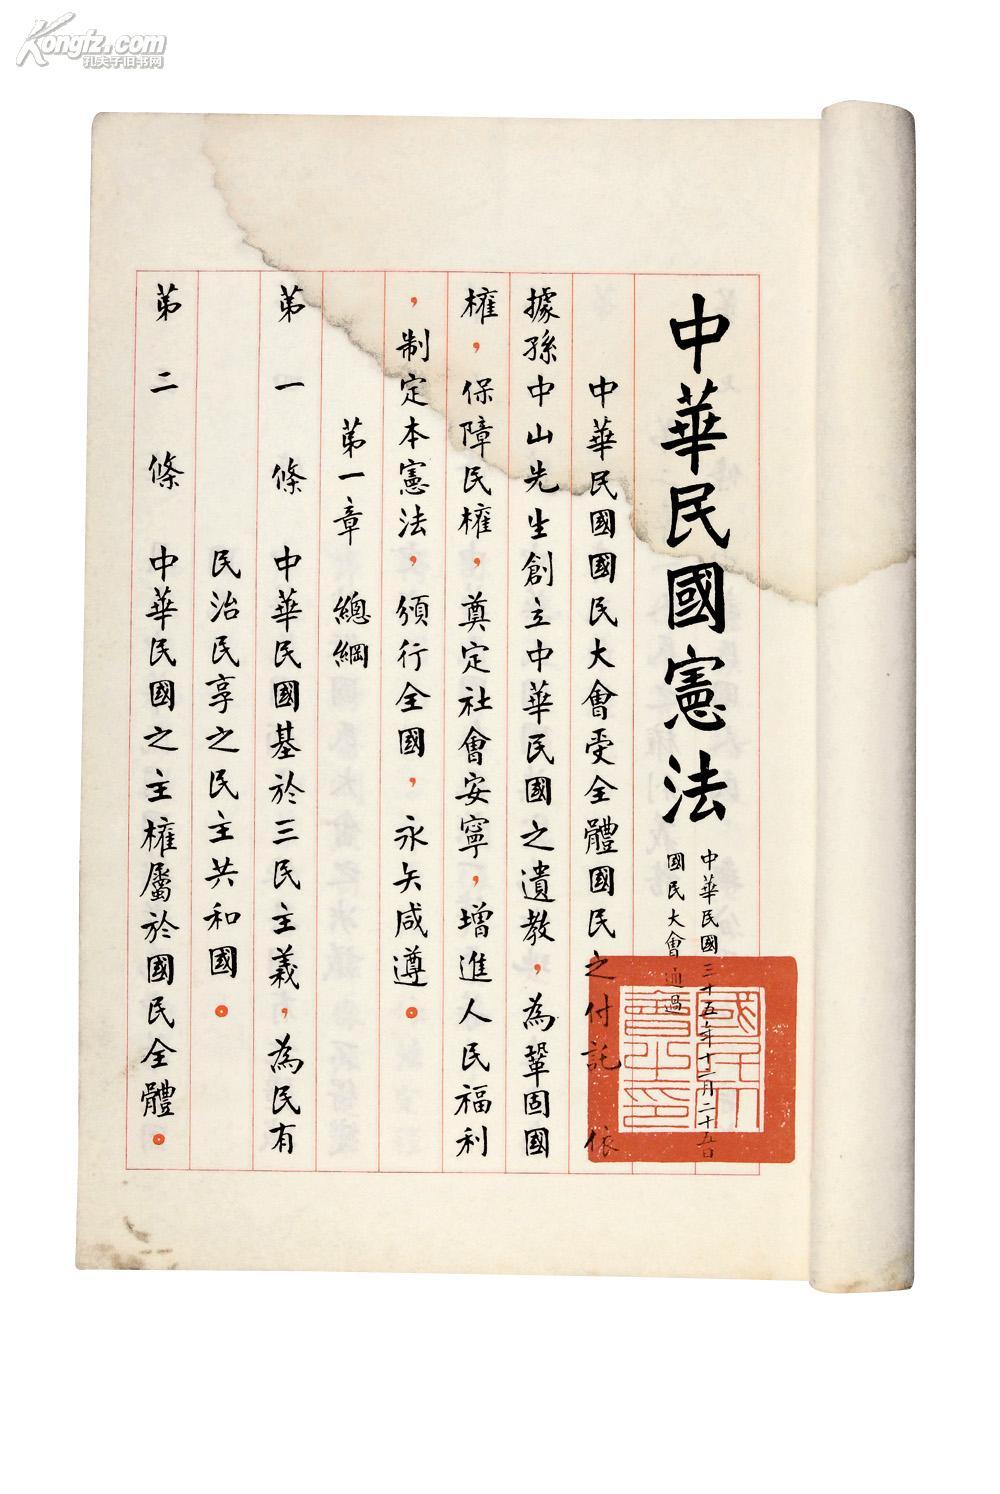 Kongfz.com
孔夫子旧书网
中華民國憲法
中華民國三十五年十二月二十五日
國民大會通過
中華民國國民大會受全體國民之付託 依
據孫中山先生創立中華民國之遺教，為鞏固國
權，保障民權，奠定社會安寧，增進人民福利
，制定本憲法，頒行全國，永矢咸遵。
第一章 總綱
第一條 中華民國基於三民主義，為民有
民治民享之民主共和國。
第二條 中華民國之主權屬於國民全體。
國民大
會之印